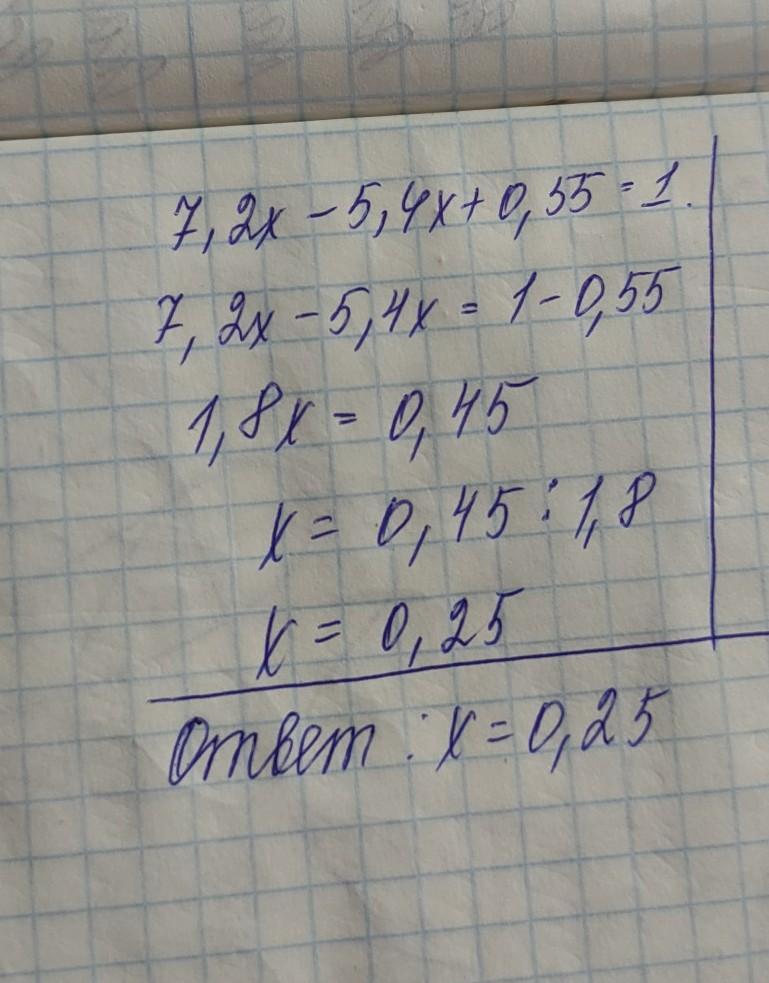 7,2x - 5,4x + 0,55 = 1.
7,2x - 5,4x = 1 - 0,55
1,8x = 0,45
x = 0,45 : 1,8
x = 0,25
Ответ : x = 0,25